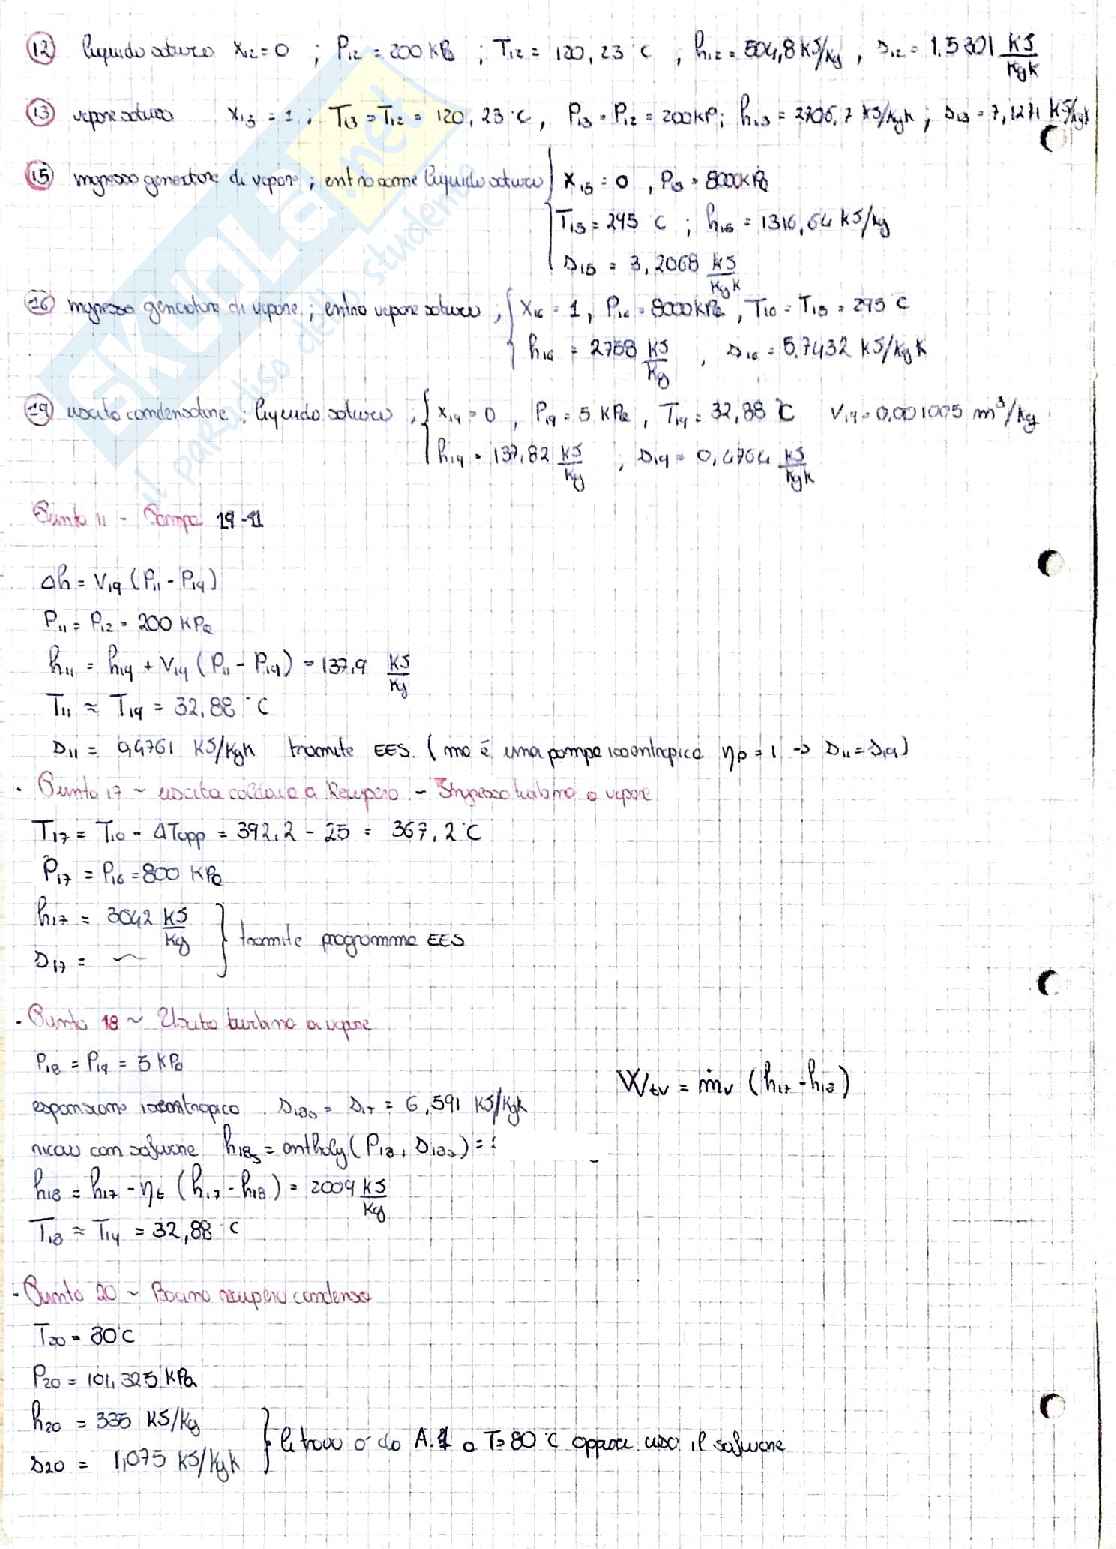 (12) liquido saturo x12 = 0 ; P12 = 200 KPa ; T12 = 120,23 °C , h12 = 504,8 KJ/Kg , s12 = 1.5301 KJ/KgK
(13) vapore saturo x13 = 1 ; T13 = T12 = 120,23 °C , P13 = P12 = 200KP; h13 = 2706,7 KJ/KgK ; s13 = 7,1271 KJ/KgK
(15) ingresso generatore di vapore ; entro come liquido saturo { x15 = 0 , P15 = 8000KPa
T15 = 295 °C ; h15 = 1316,64 KJ/Kg
s15 = 3,2068 KJ/KgK
(16) ingresso generatore di vapore ; entro vapore saturo ; { x16 = 1 , P16 = 8000KPa , T16 = T15 = 295 °C
h16 = 2758 KJ/Kg , s16 = 5,7432 KJ/KgK
(19) uscita condensatore ; liquido saturo ; { x19 = 0 , P19 = 5 KPa , T19 = 32,88 °C V19 = 0,001005 m³/Kg
h19 = 137,82 KJ/Kg ; s19 = 0,4764 KJ/KgK
Punto 11 - Pompa 19-11
Δh = V19 (P11 - P19)
P11 = P12 = 200 KPa
h11 = h19 + V19 (P11 - P19) = 137,9 KJ/Kg
T11 ≈ T19 = 32,88 °C
s11 = 0,4761 KJ/KgK tramite EES. (ma è una pompa isoentropica ηp = 1 → s11 = s19)
· Punto 17 ~ uscita caldaia a Recupero - Ingresso turbina a vapore
T17 = T10 - ΔTapp = 392,2 - 25 = 367,2 °C
P17 = P16 = 800 KPa
h17 = 3042 KJ/Kg
s17 = ~ } tramite programma EES
· Punto 18 ~ Uscita turbina a vapore
P18 = P19 = 5 KPa
Wtv = ṁv (h17 - h18)
espansione isoentropica s18s = s17 = 6,591 KJ/KgK
ricavo con software h18s = enthalpy (P18, s18s) =
h18 = h17 - ηt (h17 - h18) = 2009 KJ/Kg
T18 ≈ T19 = 32,88 °C
· Punto 20 ~ Bacino recupero condensa
T20 = 80°C
P20 = 101,325 KPa
h20 = 335 KJ/Kg
s20 = 1,075 KJ/KgK } li trovo o da A.1 a T=80 °C oppure uso il software
SKUOLA.net
il paradiso dello studente